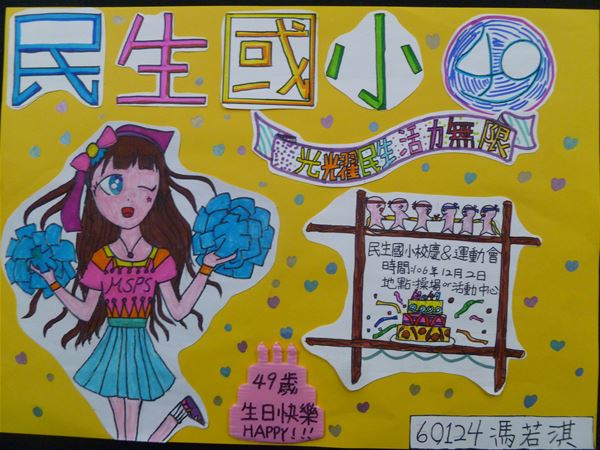 民生國小 49
光耀民生活力無限
民生國小校慶&運動會
時間:106年12月2日
地點:操場&活動中心
MSPS
49歲
生日快樂
HAPPY!!!
60124馮若淇